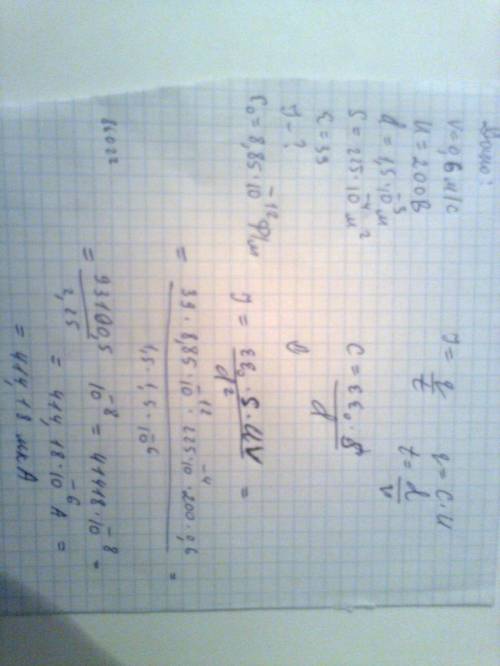 Дано:
v=0,6 м/с
U=200В
d=1,5·10⁻³ м
S=225·10⁻⁴ м²
ε=39
J-?
ε₀=8,85·10⁻¹² Ф/м
J=q/t q=C·U
t=d/v
C=εε₀·S/d
J=εε₀·S·UV/d² =
= 39·8,85·10⁻¹²·225·10⁻⁴·200·0,6/1,5·1,5·10⁻⁶ =
= 93190,5/2,25 10⁻⁸ = 41418·10⁻⁸ =
= 414,18·10⁻⁶ A =
= 414,18 мкА